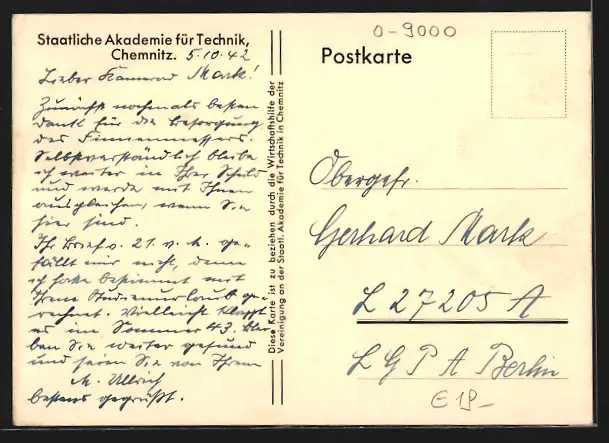 Staatliche Akademie für Technik,
Chemnitz. 5.10.42
Lieber Kamerad Mark!
Zunächst nochmals besten
Dank für die Besorgung
des Finnenmessers.
Selbstverständlich bleibe
ich weiter in Ihrer Schuld
und werde mit Ihnen
ausgleichen, wenn Sie
hier sind.
Ihr Brief v. 21. v. M. ge-
fällt mir nicht, denn
ich hatte bestimmt mit
Ihrem Studienurlaub ge-
rechnet. Vielleicht klappt
es im Sommer 43. Blei-
ben Sie weiter gesund
und seien Sie von Ihrem
M. Ullrich
bestens gegrüßt.
Diese Karte ist zu beziehen durch die Wirtschaftshilfe der
Vereinigung an der Staatl. Akademie für Technik in Chemnitz
0-9000
Postkarte
Obergefr.
Gerhard Mark
L 27205 A
L G P A Berlin
E 18-